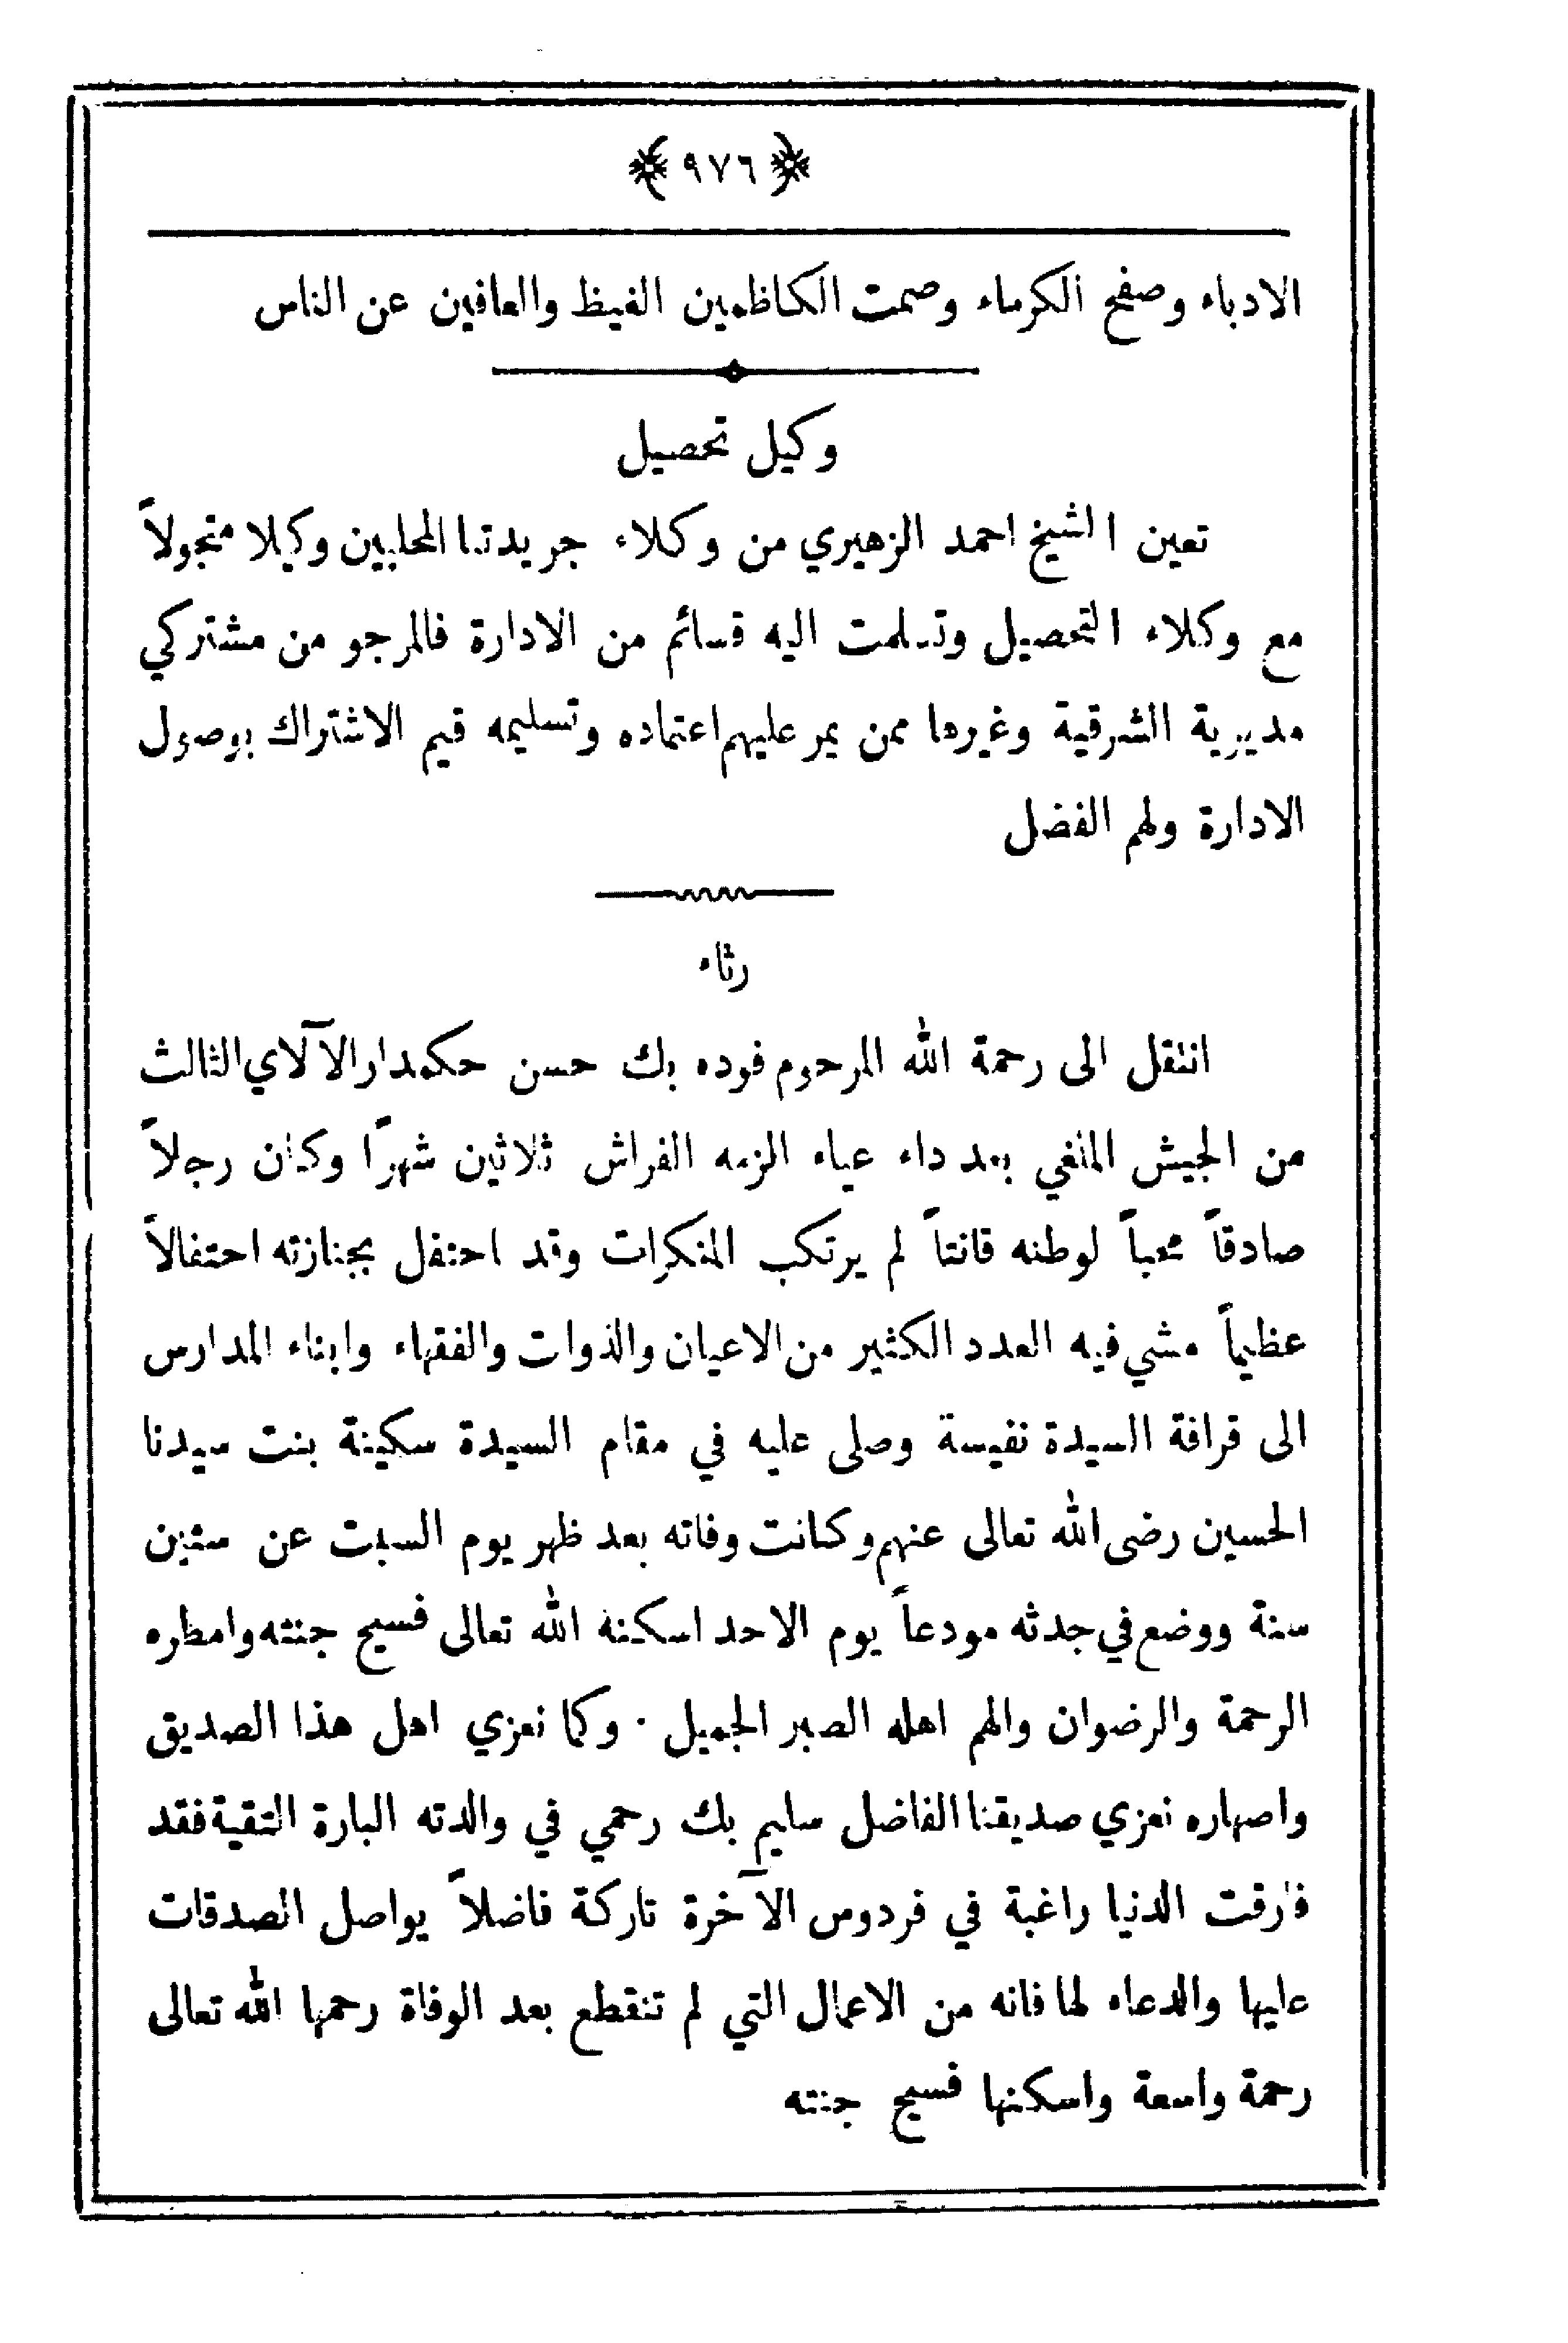 ﴿ ٩٧٦ ﴾
الادباء وصفح الكرماء وصمت الكاظمين الغيظ والعافين عن الناس
وكيل تحصيل
تعين الشيخ احمد الزهيري من وكلاء جريدتنا المحليين وكيلا متجولاً
مع وكلاء التحصيل وتسلمت اليه قسائم من الادارة فالمرجو من مشتركي
مديرية الشرقية وغيرها ممن يمر عليهم اعتماده وتسليمه قيم الاشتراك بوصول
الادارة ولهم الفضل
رثاء
انتقل الى رحمة الله المرحوم فوده بك حسن حكمدار الآلاي الثالث
من الجيش الملغي بعد داء عياء الزمه الفراش ثلاثين شهرًا وكان رجلاً
صادقاً محباً لوطنه قانتاً لم يرتكب المنكرات وقد احتفل بجنازته احتفالاً
عظيماً مشي فيه العدد الكثير من الاعيان والذوات والفقهاء وابناء المدارس
الى قرافة السيدة نفيسة وصلى عليه في مقام السيدة سكينة بنت سيدنا
الحسين رضى الله تعالى عنهم وكانت وفاته بعد ظهر يوم السبت عن ستين
سنة ووضع في جدثه مودعاً يوم الاحد اسكنه الله تعالى فسيح جنته وامطره
الرحمة والرضوان والهم اهله الصبر الجميل . وكما نعزي اهل هذا الصديق
واصهاره نعزي صديقنا الفاضل سليم بك رحمي في والدته البارة التقية فقد
فارقت الدنيا راغبة في فردوس الآخرة تاركة فاضلاً يواصل الصدقات
عليها والدعاء لها فانه من الاعمال التي لم تنقطع بعد الوفاة رحمها الله تعالى
رحمة واسعة واسكنها فسيح جنته